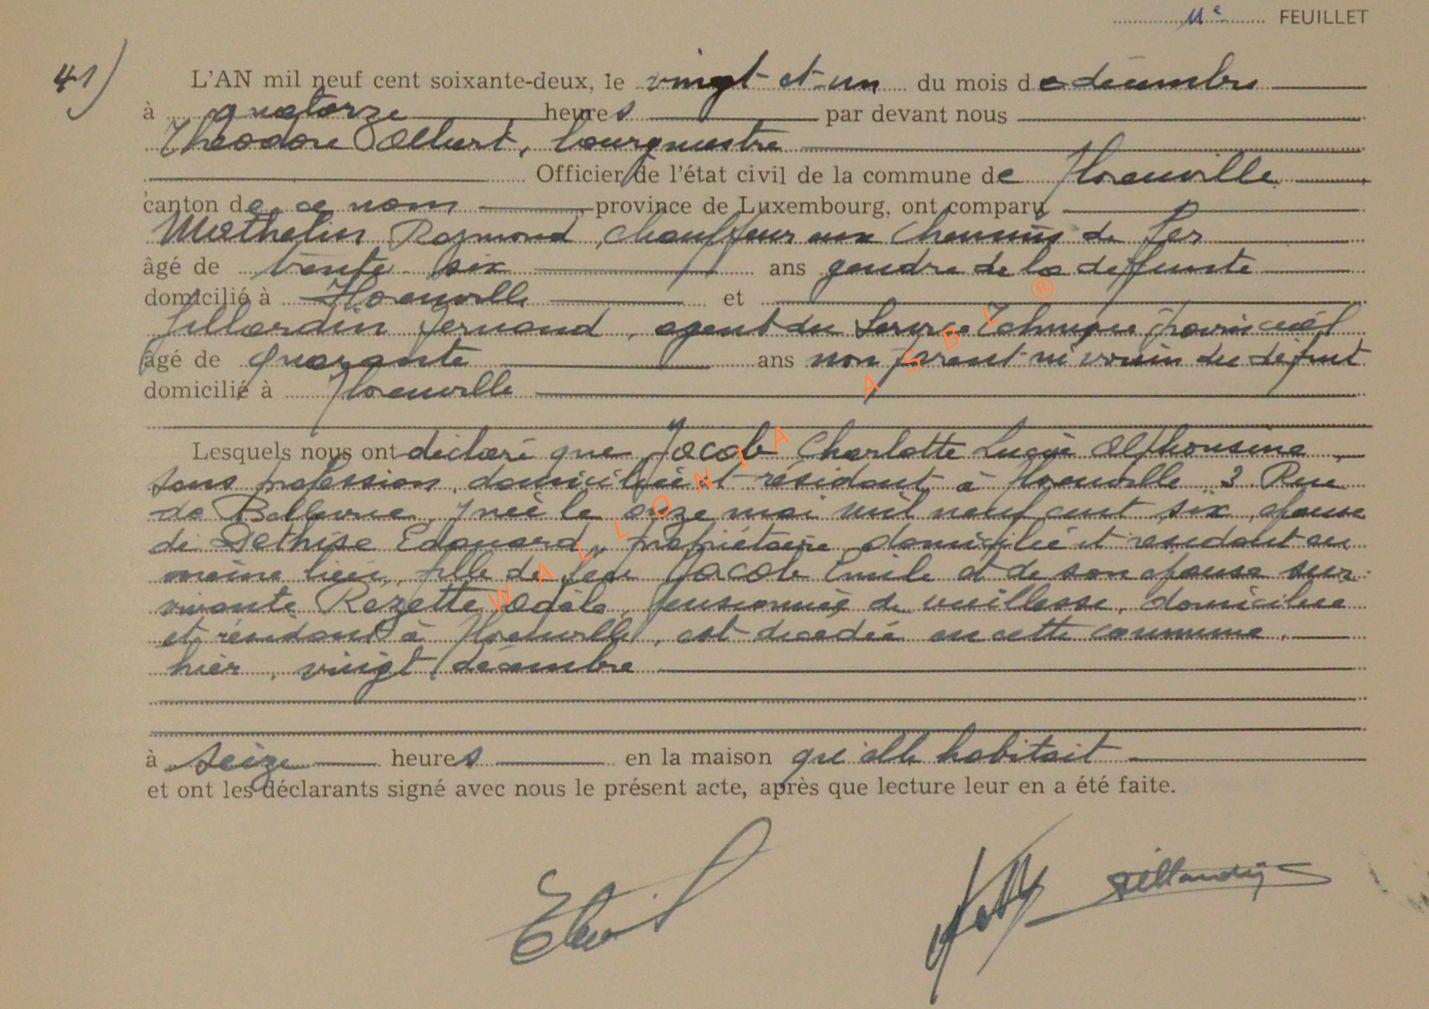 11e FEUILLET
41) L'AN mil neuf cent soixante-deux, le vingt et un du mois de décembre
à quatorze heures par devant nous
Théodore Albert, bourgmestre
Officier de l'état civil de la commune de Florenville
canton de ce nom province de Luxembourg, ont comparu
Mathelin Raymond, chauffeur aux Chemins de Fer
âgé de trente six ans gendre de la défunte
domicilié à Florenville et
Fernand, agent du Service Technique provincial
âgé de quarante ans non parent ni voisin du défunt
domicilié à Florenville
Lesquels nous ont déclaré que Jacob Charlotte Lucie Alphonsine
sans profession, domiciliée et résidant à Florenville 3 Rue
de Bellevue, née le onze mai mil neuf cent six, épouse
de Dethise Edouard, propriétaire domicilié et résidant au
même lieu, fille de feu Jacob Emile et de son épouse sur-
vivante Rozette Adèle, pensionnée de vieillesse, domiciliée
et résidant à Florenville, est décédée en cette commune,
hier, vingt décembre
à seize heures en la maison qu'elle habitait
et ont les déclarants signé avec nous le présent acte, après que lecture leur en a été faite.
WALLONIA ASBL ®